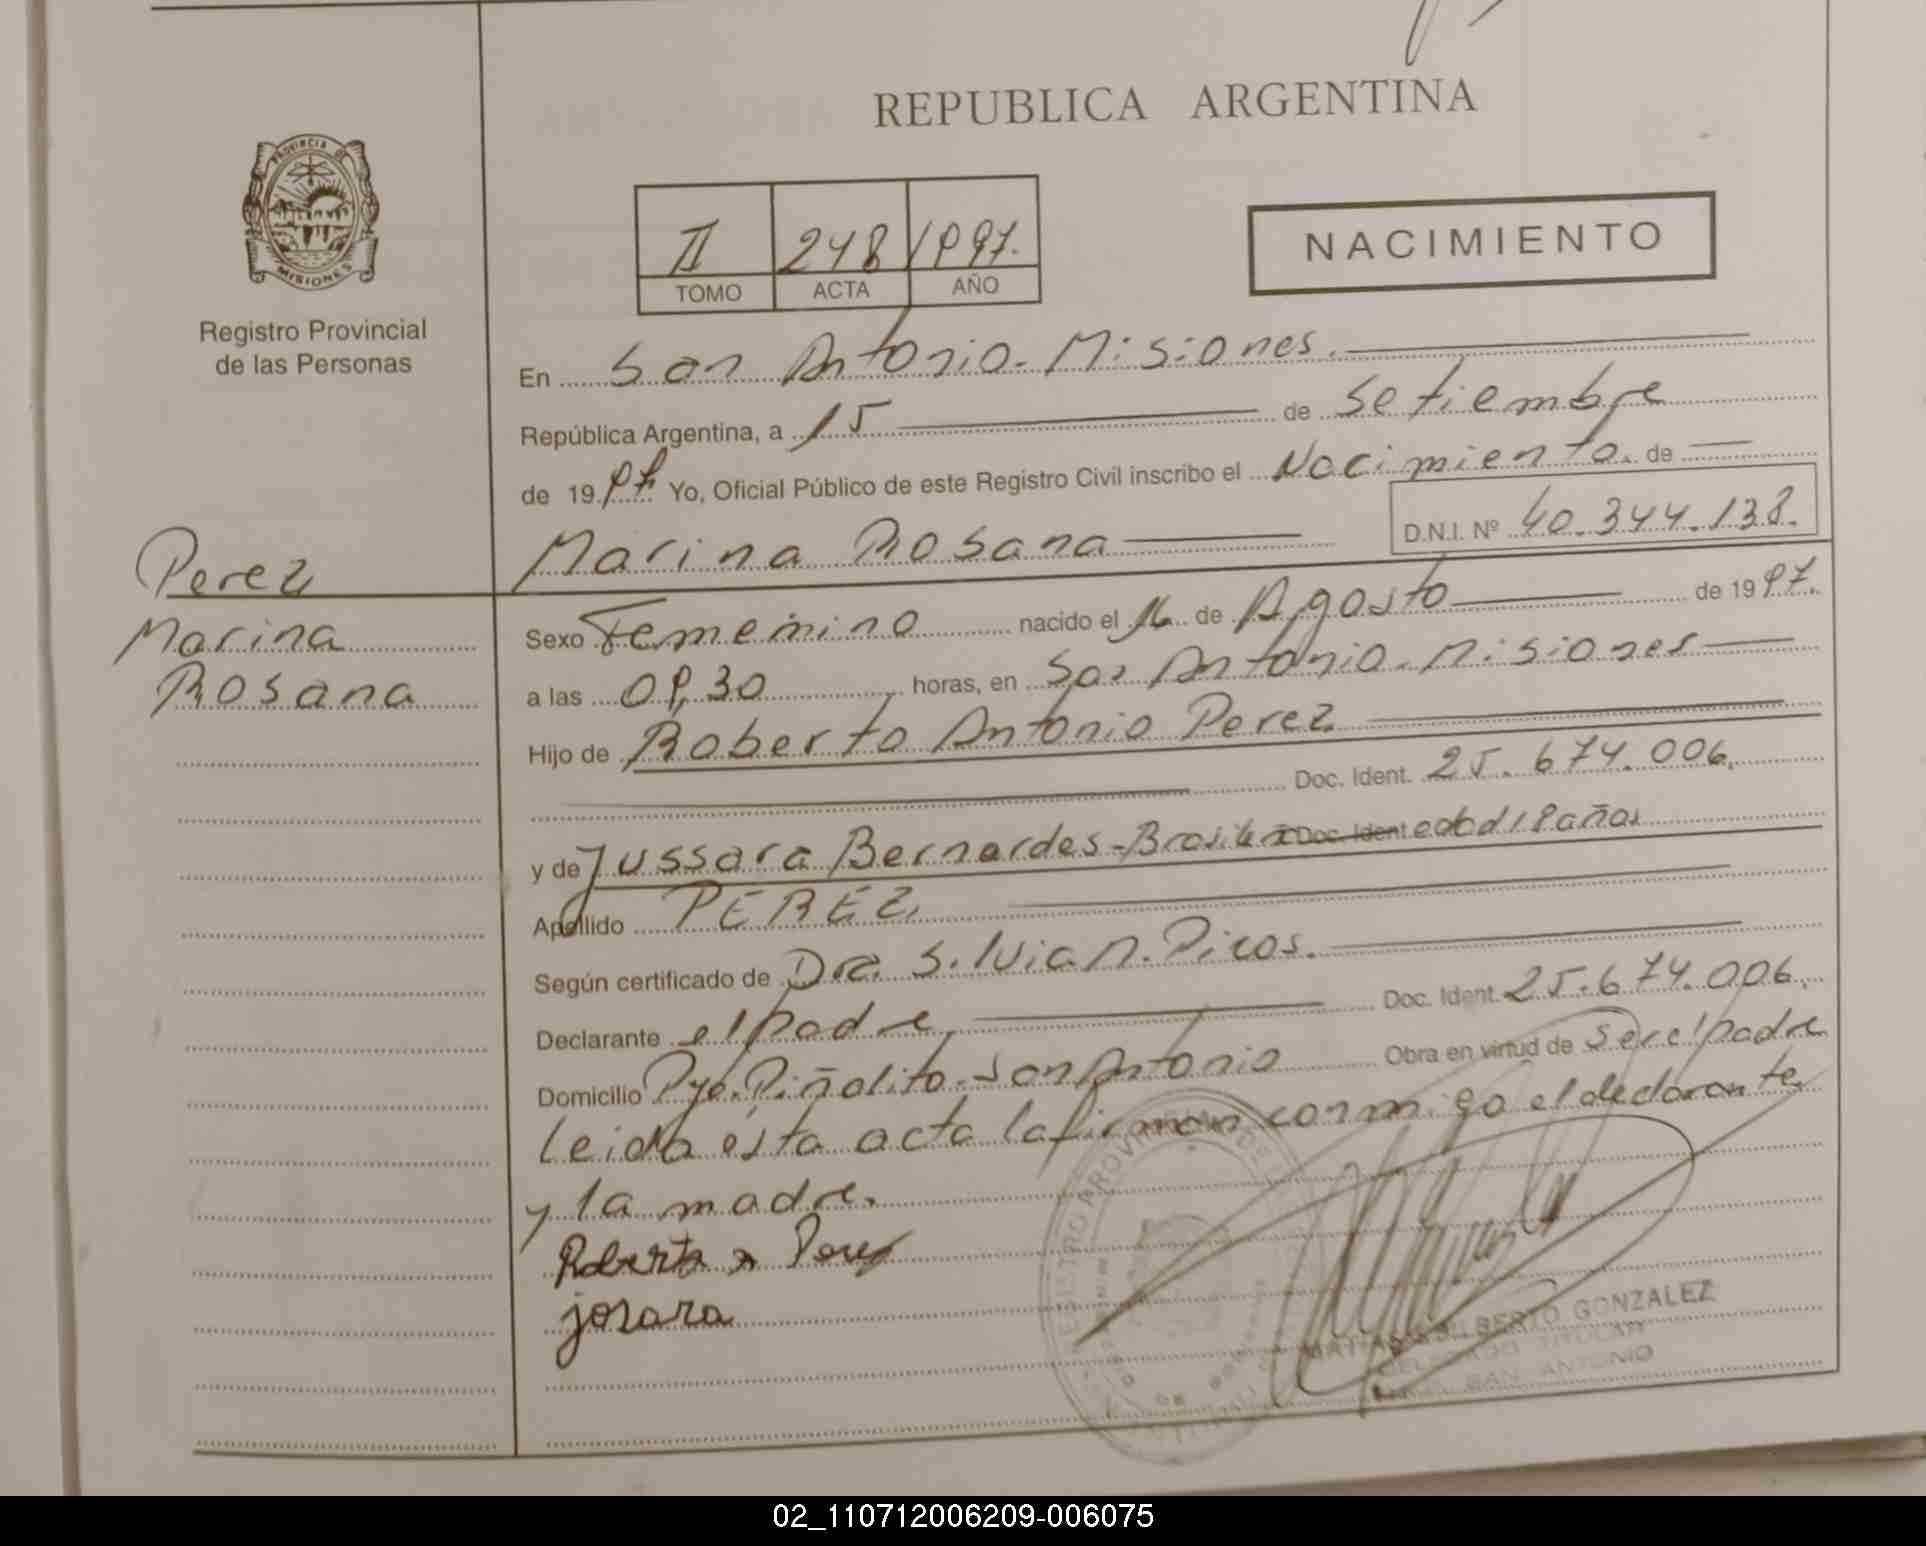 REPUBLICA ARGENTINA
PROVINCIA DE
MISIONES
Registro Provincial
de las Personas
II 248 1997.
TOMO ACTA AÑO
NACIMIENTO
En San Antonio - Misiones.
República Argentina, a 15 de Setiembre
de 1997 Yo, Oficial Público de este Registro Civil inscribo el Nacimiento. de
Marina Rosana D.N.I. Nº 40.344.138.
Perez
Marina
Rosana
Sexo Femenino nacido el 16 de Agosto de 1997.
a las 09,30 horas, en San Antonio - Misiones
Hijo de Roberto Antonio Perez
Doc. Ident. 25.674.006.
y de Jussara Bernardes - Doc. Ident edad 18 años
Apellido PEREZ
Según certificado de Dra. Silvia
Declarante el padre Doc. Ident. 25.674.006.
Domicilio Pje. Piñalito - San Antonio Obra en virtud de Ser el padre
Leida ésta acta la firman conmigo el declarante
y la madre.
Roberto Perez
josara
REGISTRO PROVINCIAL DE
MATIAS GILBERTO GONZALEZ
DELEGADO TITULAR
SAN ANTONIO
02_110712006209-006075